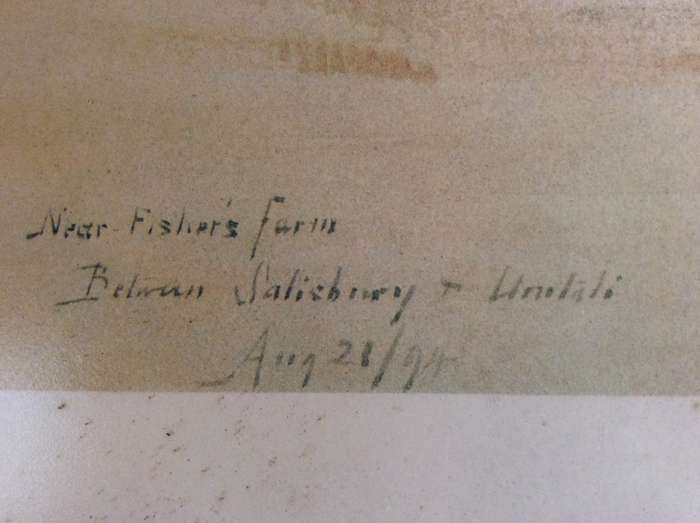 Near Fisher's Farm
Between Salisbury & Umtali
Aug 28/94